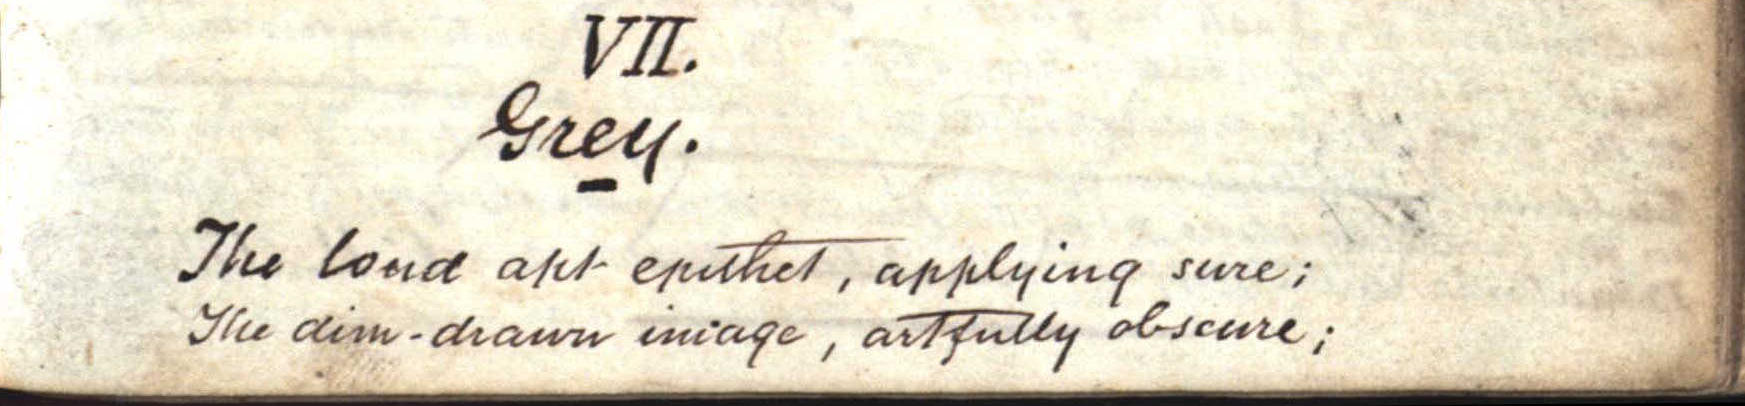 VII.
Grey.
The loud apt epithet, applying sure;
The dim-drawn image, artfully obscure;